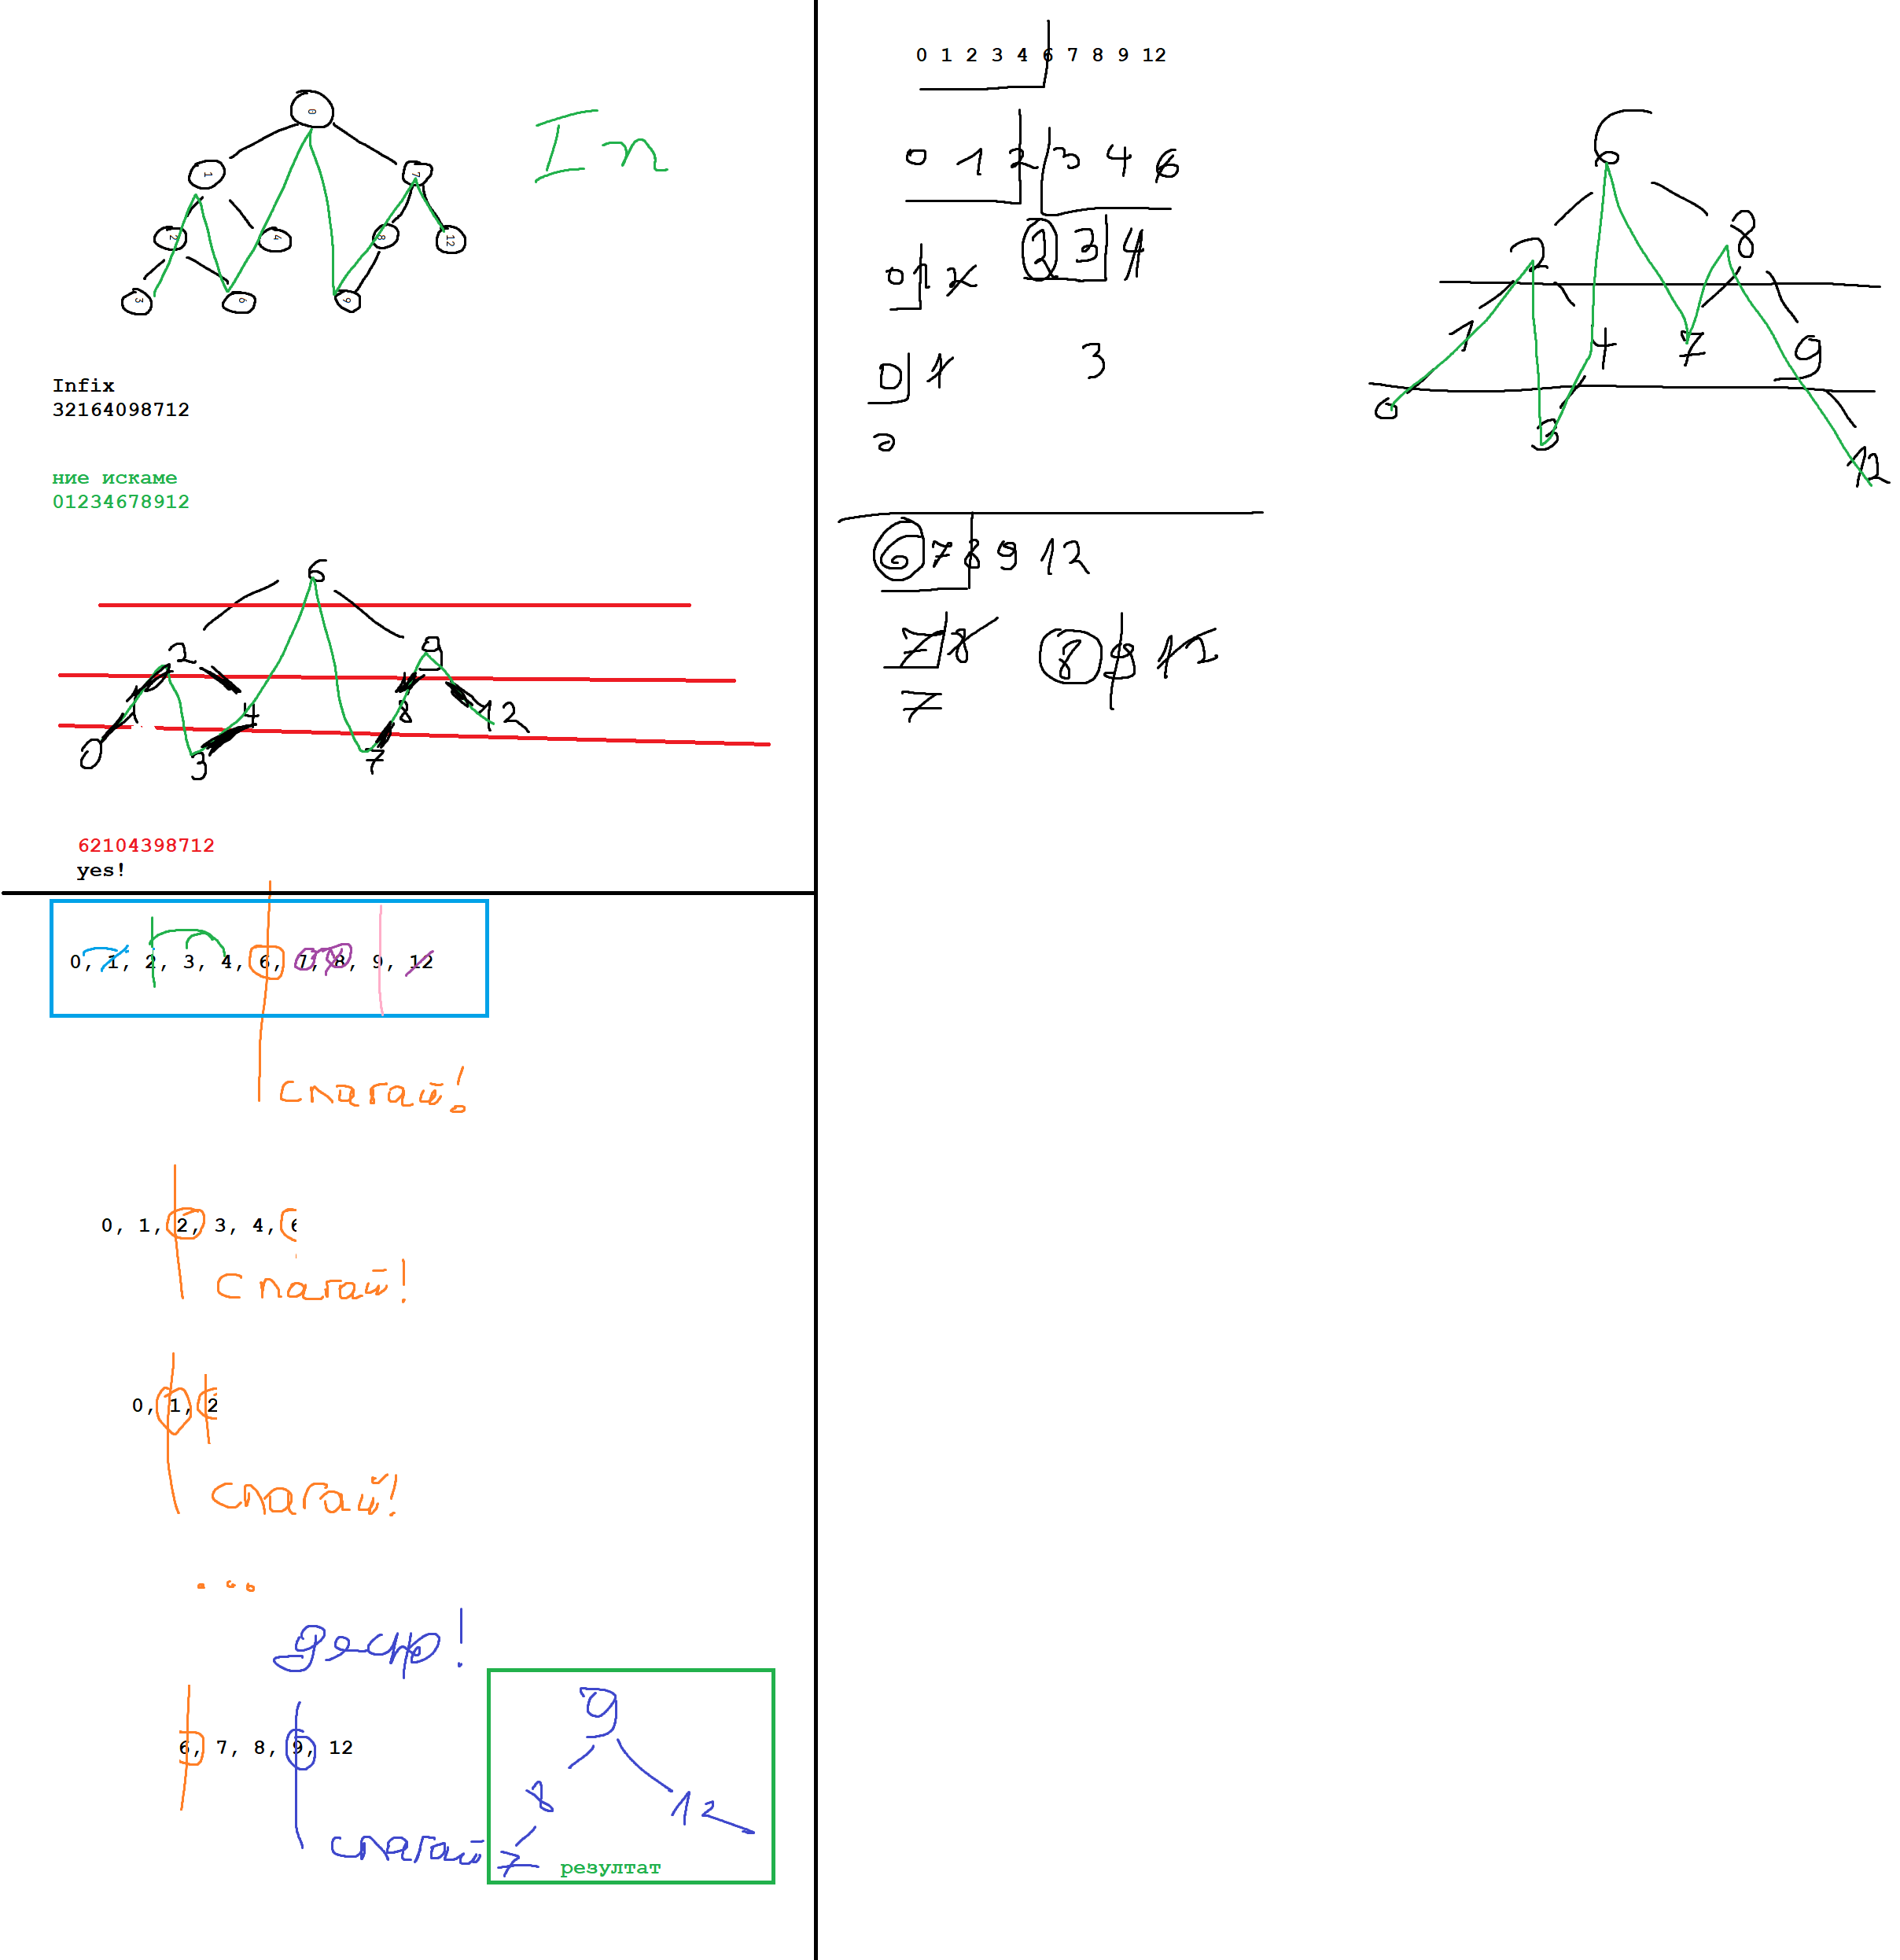 0
In
1
7
2
4
8
12
3
6
9
Infix
32164098712
ние искаме
01234678912
6
2
9
1
4
8
12
0
3
7
62104398712
yes!
0, 1, 2, 3, 4, 6, 7, 8, 9, 12
слагай!
0, 1, 2, 3, 4, 6
слагай!
0, 1, 2
слагай!
...
дясно!
6, 7, 8, 9, 12
слагай
9
8
12
7
резултат
0 1 2 3 4 6 7 8 9 12
0 1 2 3 4 6
0 1 2
2 3 4
0 1
3
0
6 7 8 9 12
7 8
8 9 12
7
6
2
8
1
4
7
9
0
3
12